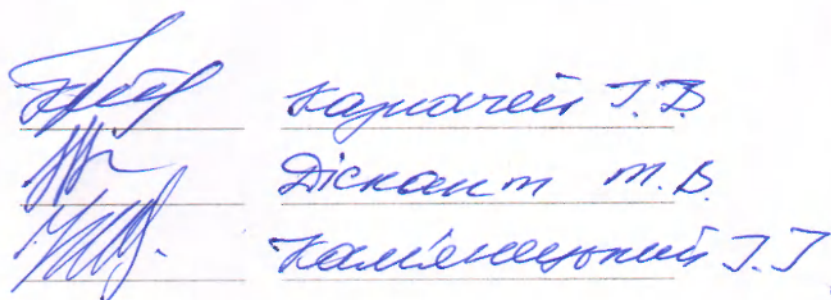 Казначей Т.В
Діскант Т.В.
Кам'янецький Т.Т